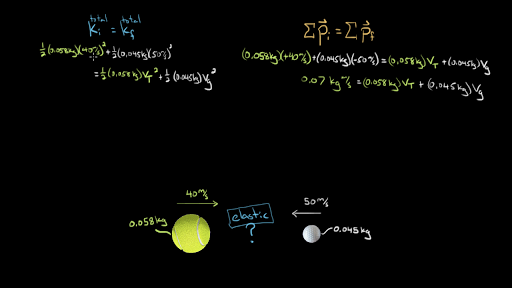 total total
Ki = Kf
½(0.058kg)(+40m/s)² + ½(0.045kg)(50m/s)²
= ½(0.058kg)V_T² + ½(0.045kg)V_g²
Σp⃗i = Σp⃗f
(0.058kg)(+40m/s)+(0.045kg)(-50m/s) = (0.058kg)V_T + (0.045kg)V_g
0.07 kg m/s = (0.058kg)V_T + (0.045kg)V_g
40 m/s
50 m/s
elastic
?
0.058kg
0.045kg